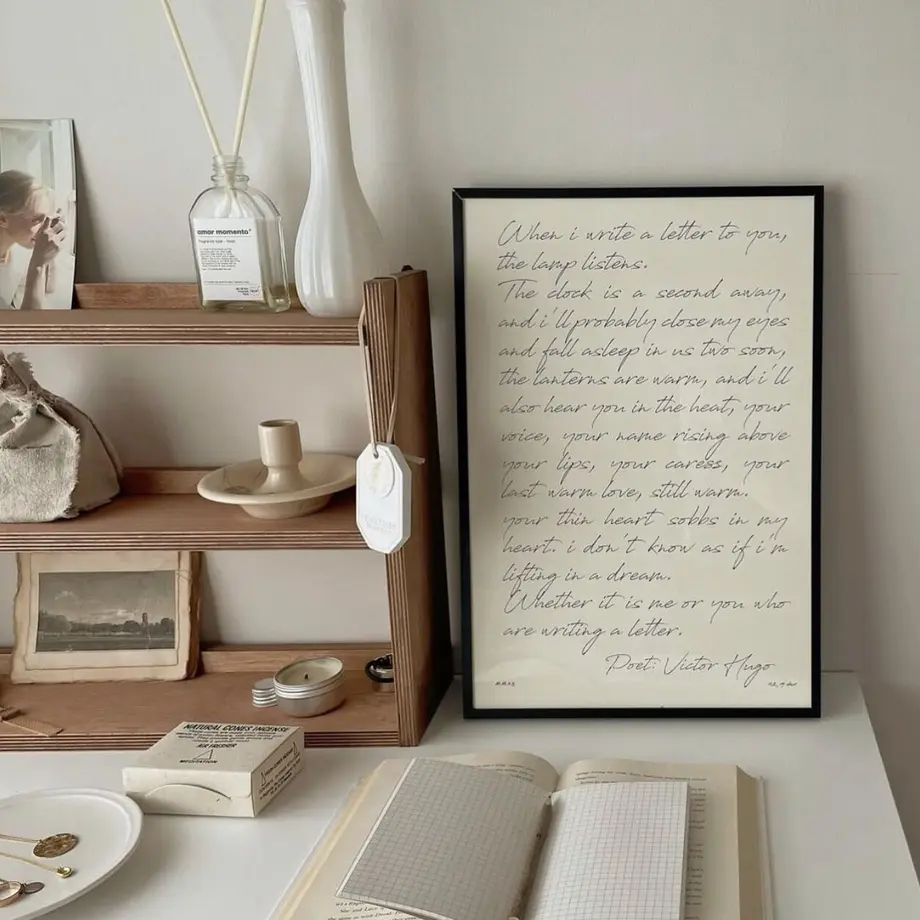 amor momento
When i write a letter to you,
the lamp listens.
The clock is a second away,
and i'll probably close my eyes
and fall asleep in us two soon,
the lanterns are warm, and i'll
also hear you in the heat, your
voice, your name rising above
your lips, your caress, your
last warm love, still warm.
your thin heart sobbs in my
heart. i don't know as if i'm
lifting in a dream.
Whether it is me or you who
are writing a letter.
Poet: Victor Hugo
NATURAL CONES INCENSE
AIR FRESHER
MEDITATION